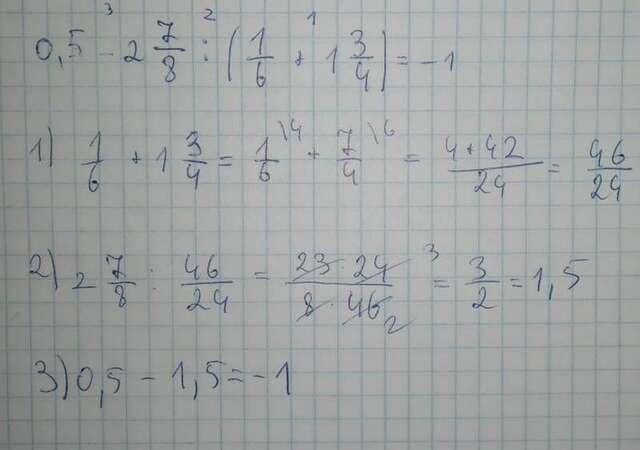 0,5 - 2 7/8 : (1/6 + 1 3/4) = -1
1) 1/6 + 1 3/4 = 1/6 \4 + 7/4 \6 = 4+42/24 = 46/24
2) 2 7/8 : 46/24 = 23·24/8·46 = 3/2 = 1,5
3) 0,5 - 1,5 = -1